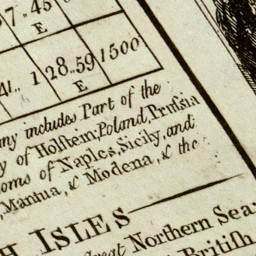 57 .. 45
E
41 .. 1 28 .. 59 1500
E
any includes Part of the
y of Holſtein, Poland, Pruſsia
oms of Naples, Sicily, and
, Mantua, & Modena, & the
H ISLES
Great Northern Sea
Britiſh